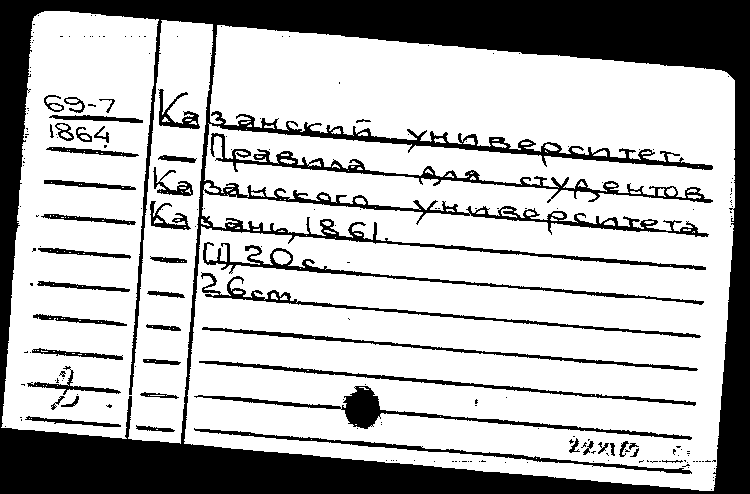 69-7
1864
Казанский университет.
Правила для студентов
Казанского университета
Казань, 1861.
[1], 20 с.
26 cm.
2.